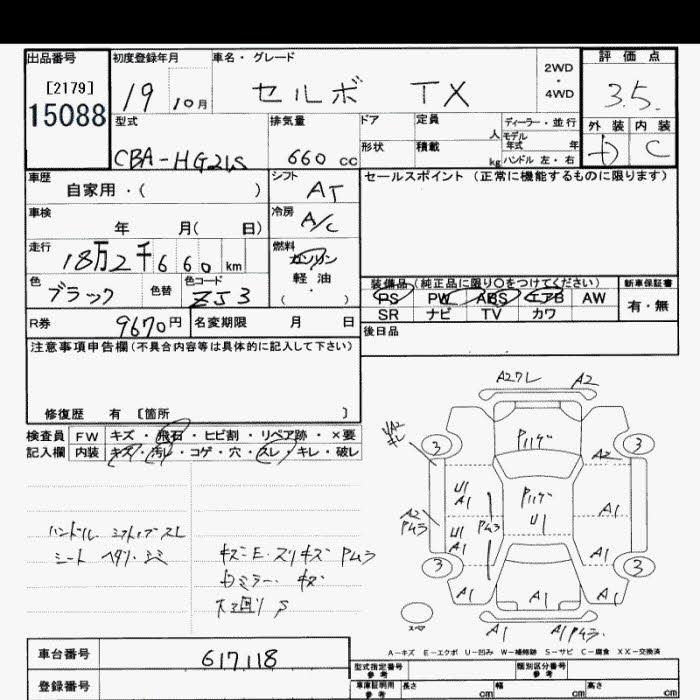 出品番号 初度登録年月 車名・グレード 2WD・4WD 評価点
[2179] 15088 19 10月 セルボ TX 3.5
型式 排気量 ドア 定員 人 ディーラー・並行 外装 内装
CBA-HG21S 660cc 形状 積載 kg モデル年式 年 ハンドル 左・右 C
車歴 自家用・( ) シフト AT セールスポイント (正常に機能するものに限ります)
車検 年 月( 日) 冷房 A/C
走行 18万2千660km 燃料 ガソリン 軽油 ( ・ )
色 ブラック 色替 色コード ZJ3
装備品(純正品に限り○をつけてください) 新車保証書
PS PW ABS エアB AW 有・無
SR ナビ TV カワ
R券 9670円 名変期限 月 日 後日品
注意事項申告欄(不具合内容等は具体的に記入して下さい)
修復歴 有 [箇所 ]
検査員 FW キズ・飛石・ヒビ割・リペア跡・×要
記入欄 内装 キズ・汚レ・コゲ・穴・スレ・キレ・破レ
ハンドル シフトノブスレ
シート ヘタリ・シミ
キズ=E・スリキズ Pムラ
ミラー キズ
下廻り S
A2ワレ A2
Pハゲ
3 3
A2
U1 A1 Pハゲ A1
A2 Pムラ U1 A1 Pムラ U1 A1
3 3
A1 A1 A1
スペア A1 A1Pムラ
A-キズ E-エクボ U-凹み W-補修跡 S-サビ C-腐食 XX-交換済
車台番号 617118 型式指定番号 参考 類別区分番号 参考
登録番号 車庫証明用 参考 長さ cm 幅 cm 高さ cm